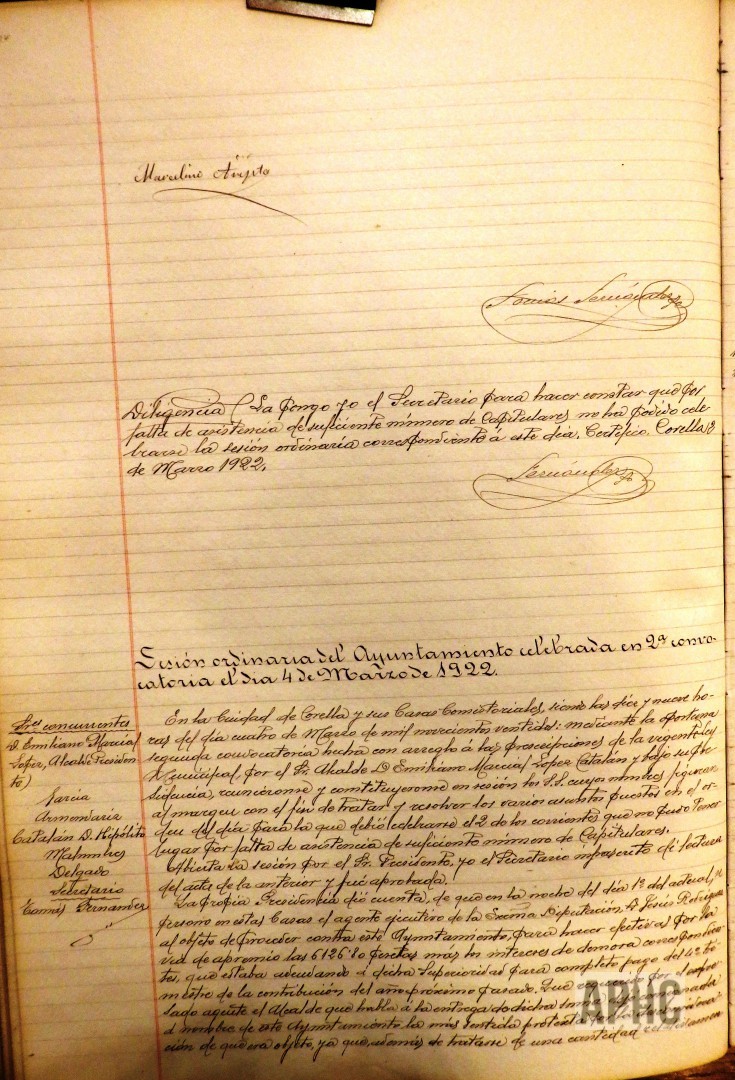 Marcelino
Diligencia (La pongo yo el Secretario para hacer constar que por
falta de asistencia de suficiente número de Capitulares no ha podido cele-
brarse la sesión ordinaria correspondiente á este día. Certifico. Corella
de Marzo 1922.
Fernández
Sesión ordinaria del Ayuntamiento celebrada en 2ª convo-
catoria el día 4 de Marzo de 1922.
Sres. concurrentes
D. Emiliano Marcial
Lopez, Alcalde Presiden-
te)
Garcia
Catalán D. Hipólito
Delgado
Secretario
Tomás Fernandez
En la Ciudad de Corella y sus Casas Consistoriales, siendo las diez y nueve ho-
ras del día cuatro de Marzo de mil novecientos ventidos: mediante la oportuna
segunda convocatoria hecha con arreglo á las prescripciones de la vigente Ley
Municipal por el Sr. Alcalde D. Emiliano Marcial Lopez Catalan y bajo su Pre-
sidencia, reuniéronse y constituyéronse en sesión los S.S. cuyos nombres figuran
al margen con el fin de tratar y resolver los varios asuntos puestos en el or-
den del día para la que debió celebrarse el 2 de los corrientes que no pudo tener
lugar por falta de asistencia de suficiente número de Capitulares.
Abierta la sesión por el Sr. Presidente, yo el Secretario infrascrito dí lectura
del acta de la anterior y fué aprobada.
La propia Presidencia dió cuenta, de que en la noche del día 1º del actual, se
personó en estas Casas el agente ejecutivo de la Excma. Diputación, D. Jesús
al objeto de proceder contra este Ayuntamiento, para hacer efectivas por la
via de apremio las 6126'80 pesetas mas los intereses de demora correspondien-
tes, que estaba adeudando á dicha Superioridad para completo pago del 4º tri-
mestre de la contribución del año próximo pasado. Que
agente el Alcalde que habla á la entrega de dicha
á nombre de este Ayuntamiento la mas sentida protesta
ción de que era objeto, ya que, además de tratarse de una cantidad
APHC